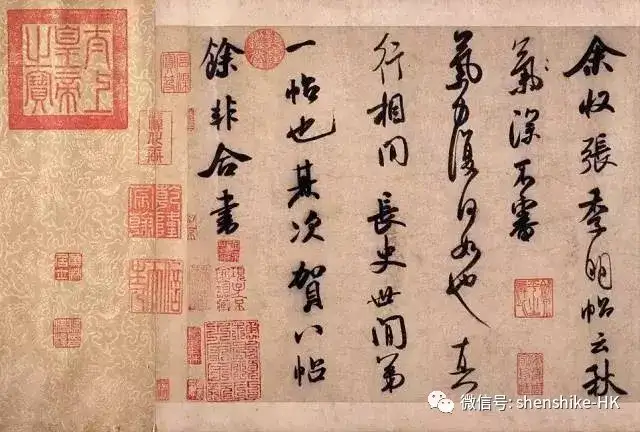 余收張季明帖云秋
氣深不審
氣力復何如也真
行相間長史世間第
一帖也其次賀八帖
餘非合書
太上
皇帝
之寶
乾隆
宸翰
微信号: shenshike-HK